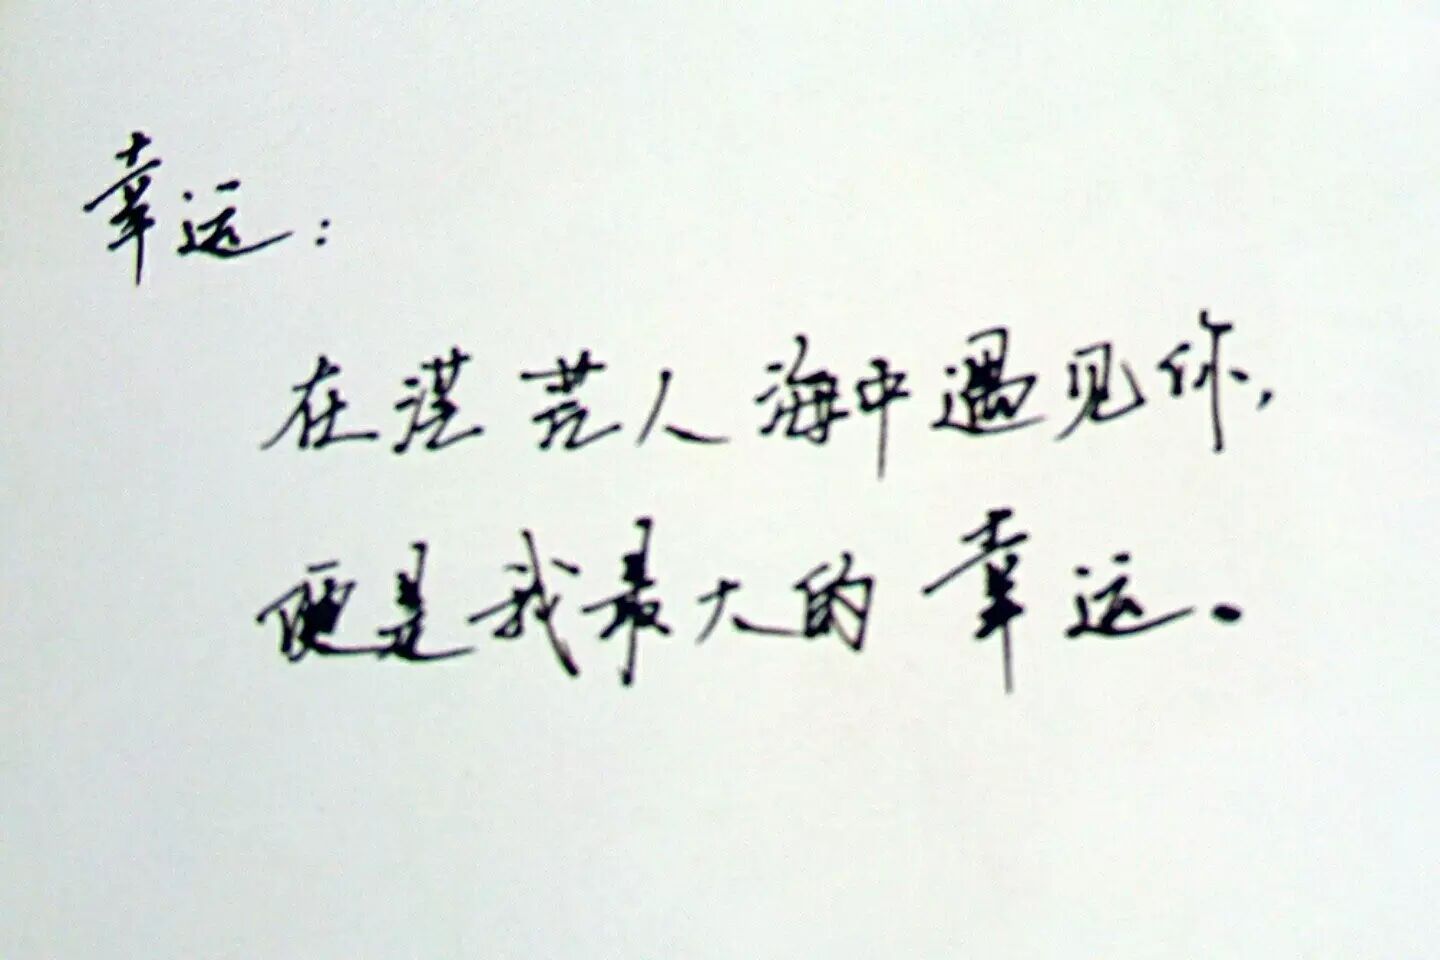 幸运：
在茫茫人海中遇见你，
便是我最大的幸运。